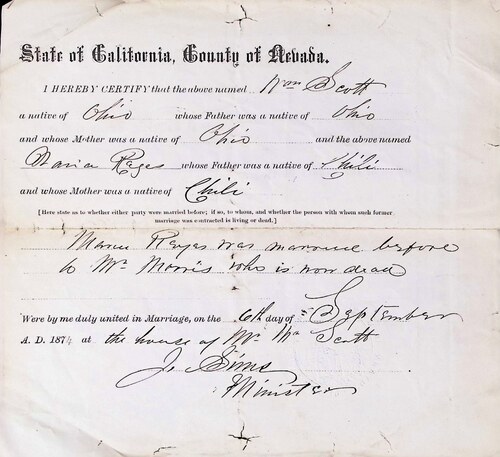 State of California, County of Nevada.
I HEREBY CERTIFY that the above named Wm Scott
a native of Ohio whose Father was a native of Ohio
and whose Mother was a native of Ohio and the above named
Maria Reyes whose Father was a native of Chili
and whose Mother was a native of Chili
[Here state as to whether either party were married before; if so, to whom, and whether the person with whom such former
marriage was contracted is living or dead.]
Maria Reyes was married before
to Mr Morris who is now dead
Were by me duly united in Marriage, on the 6th day of September
A. D. 187 at the house of Mr Wm Scott
J. Sims
Minister